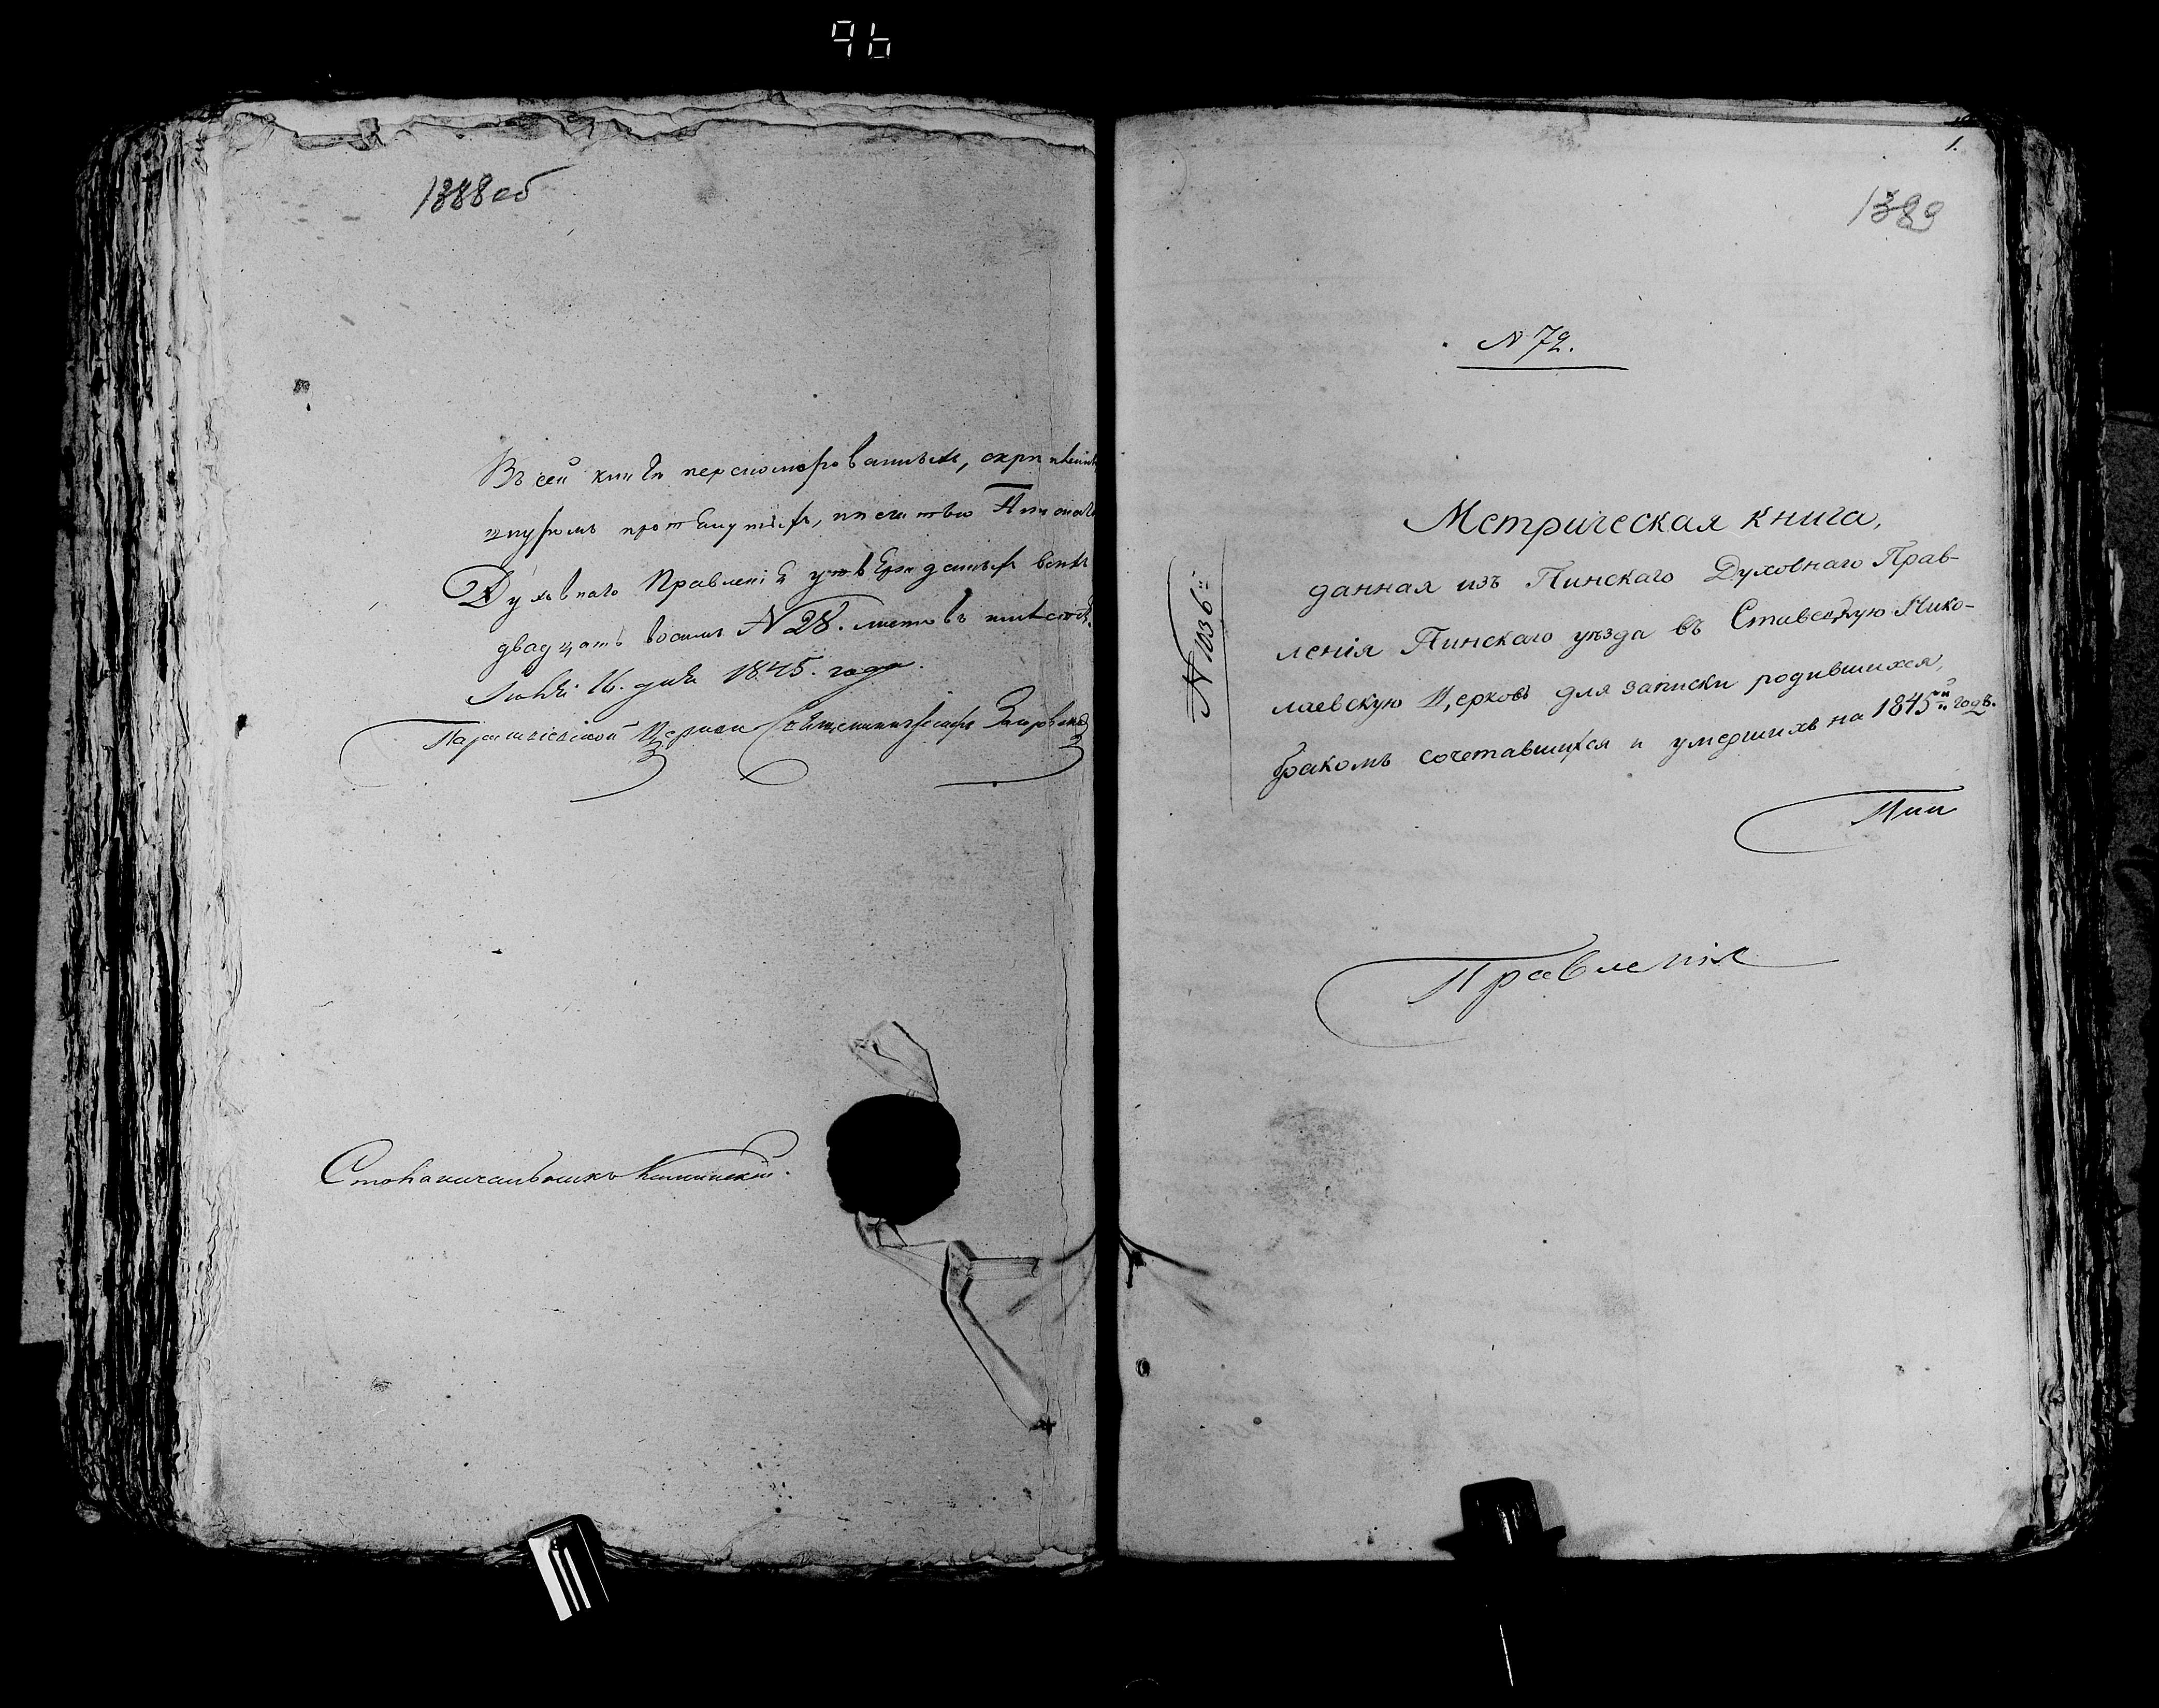 96
1388 об
Въ сей книгѣ переномерованныхъ, скрепленныхъ
шнуромъ протянутыхъ, печатью Пинскаго
Духовнаго Правленія утвержденныхъ всѣхъ
двадцать восемь N 28. листовъ
16. дня 1845. года.
Церкви Священникъ
1.
1389
N 72.
N 1036
Метрическая книга,
данная изъ Пинскаго Духовнаго Прав-
ленія Пинскаго уѣзда въ Ставецкую Нико-
лаевскую Церковь для записки родившихся,
бракомъ сочетавшихся и умершихъ на 1845й годъ.
Пин
Правленія